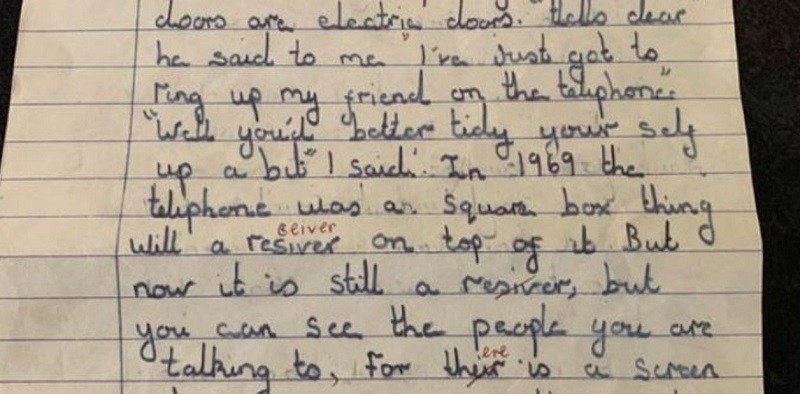 doors are electric doors. "Hello dear
he said to me "I've just got to
ring up my friend on the teliphone."
"Well you'd better tidy your self
up a bit" I said. In 1969 the
teliphone was a square box thing
will a resiver on top of it But
ceiver
now it is still a resiver, but
you can see the people you are
talking to, for their is a screen
ere